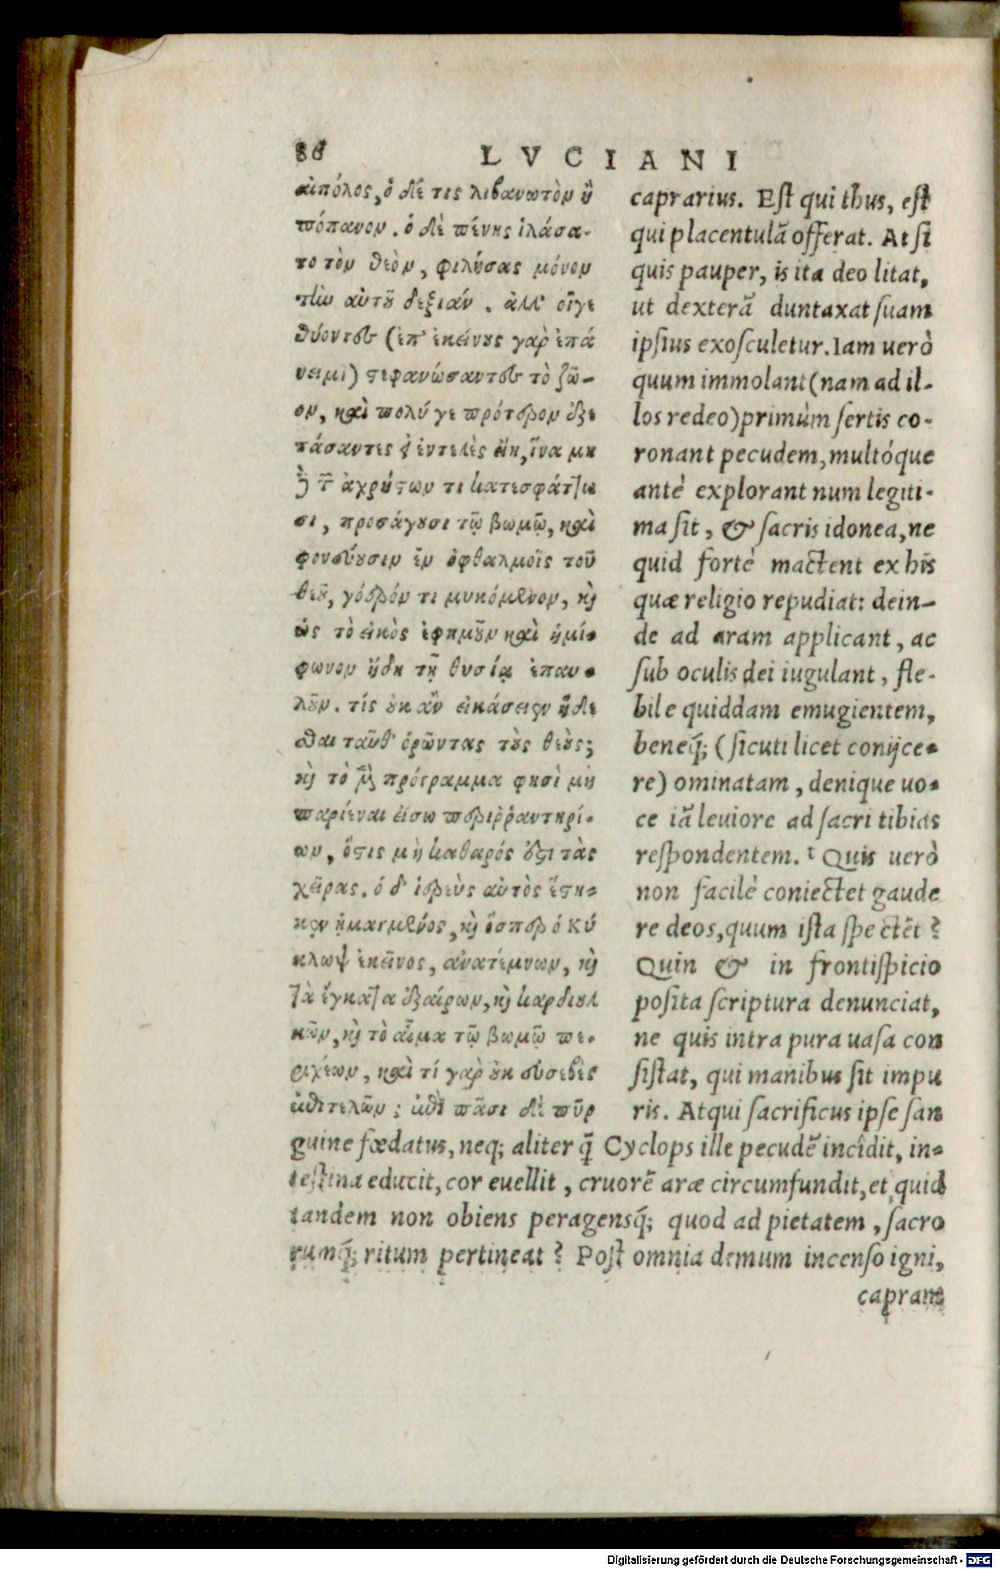 86 LVCIANI
αἰπόλος, ὁ δέ τις λιβανωτὸν ἢ
πόπανον. ὁ δὲ πένης ἱλάσα-
το τὸν θεὸν, φιλήσας μόνον
τὴν αὐτοῦ δεξιάν. ἀλλ' οἵγε
θύοντες (ἐπ' ἐκείνους γὰρ ἐπά
νειμι) στεφανώσαντες τὸ ζῶ-
ον, καὶ πολύ γε πρότερον ἐξε
τάσαντες εἰ ἐντελὲς εἴη, ἵνα μη
δὲ τῶν ἀχρήστων τι κατασφάττω
σι, προσάγουσι τῷ βωμῷ, καὶ
φονεύουσιν ἐν ὀφθαλμοῖς τοῦ
θεοῦ, γοερόν τι μυκόμενον, καὶ
ὡς τὸ εἰκὸς ἐφημοῦν καὶ ἡμί-
φωνον ἤδη τῇ θυσίᾳ ἐπαυ-
λοῦν. τίς οὐκ ἂν εἰκάσειεν ἥδε
σθαι ταῦθ' ὁρῶντας τοὺς θεούς;
καὶ τὸ μὲν πρόγραμμα φησὶ μὴ
παριέναι εἴσω περιῤῥαντηρί-
ων, ὅστις μὴ καθαρός ἐστι τὰς
χεῖρας. ὁ δ' ἱερεὺς αὐτὸς ἕστη-
κεν ᾑμαγμένος, καὶ ὥσπερ ὁ κύ
κλωψ ἐκεῖνος, ἀνατέμνων, καὶ
τὰ ἔγκατα ἐξαίρων, καὶ καρδιουλ
κῶν, καὶ τὸ αἷμα τῷ βωμῷ πε-
ριχέων, καὶ τί γὰρ οὐκ εὐσεβὲς
ἐπιτελῶν; ἐπὶ πᾶσι δὲ πῦρ
caprarius. Est qui thus, est
qui placentulã offerat. At si
quis pauper, is ita deo litat,
ut dexterã duntaxat suam
ipsius exosculetur. Iam uerò
quum immolant (nam ad il-
los redeo) primùm sertis co-
ronant pecudem, multóque
antè explorant num legiti-
ma sit, & sacris idonea, ne
quid fortè mactent ex his
quæ religio repudiat: dein-
de ad aram applicant, ac
sub oculis dei iugulant, fle-
bile quiddam emugientem,
beneq́; (sicuti licet conijce-
re) ominatam, denique uo-
ce iã leuiore ad sacri tibias
respondentem. Quis uerò
non facilè coniectet gaude
re deos, quum ista spectẽt?
Quin & in frontispicio
posita scriptura denunciat,
ne quis intra pura uasa con
sistat, qui manibus sit impu
ris. Atqui sacrificus ipse san
guine fœdatus, neq; aliter q̃ Cyclops ille pecudẽ incîdit, in-
testina educit, cor euellit, cruorẽ aræ circumfundit, et quid
tandem non obiens peragensq́; quod ad pietatem, sacro
rumq́; ritum pertineat? Post omnia demum incenso igni,
capram
Digitalisierung gefördert durch die Deutsche Forschungsgemeinschaft - DFG